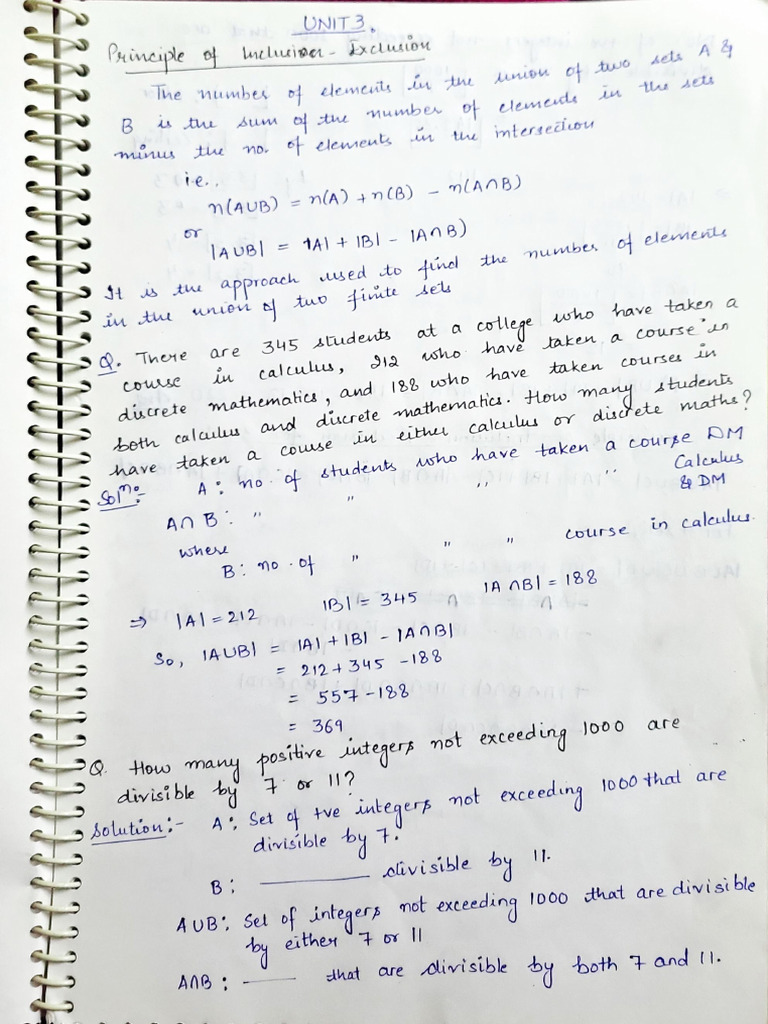 UNIT 3.
Principle of Inclusion - Exclusion
The number of elements in the union of two sets A &
B is the sum of the number of elements in the sets
minus the no. of elements in the intersection
i.e..
n(A∪B) = n(A) + n(B) - n(A∩B)
or
|A∪B| = |A| + |B| - |A∩B)
It is the approach used to find the number of elements
in the union of two finite sets
Q. There are 345 students at a college who have taken a
course in calculus, 212 who have taken a course in
discrete mathematics, and 188 who have taken courses in
both calculus and discrete mathematics. How many students
have taken a course in either calculus or discrete maths?
Solⁿ:- A: no. of students who have taken a course DM
A∩B: " " " " Calculus & DM
where
B: no. of " " " course in calculus.
⇒ |A| = 212 |B| = 345 |A∩B| = 188
So, |A∪B| = |A| + |B| - |A∩B|
= 212 + 345 - 188
= 557 - 188
= 369
Q. How many positive integers not exceeding 1000 are
divisible by 7 or 11?
Solution:- A: Set of +ve integers not exceeding 1000 that are
divisible by 7.
B: ——— divisible by 11.
A∪B: Set of integers not exceeding 1000 that are divisible
by either 7 or 11
A∩B: —— that are divisible by both 7 and 11.